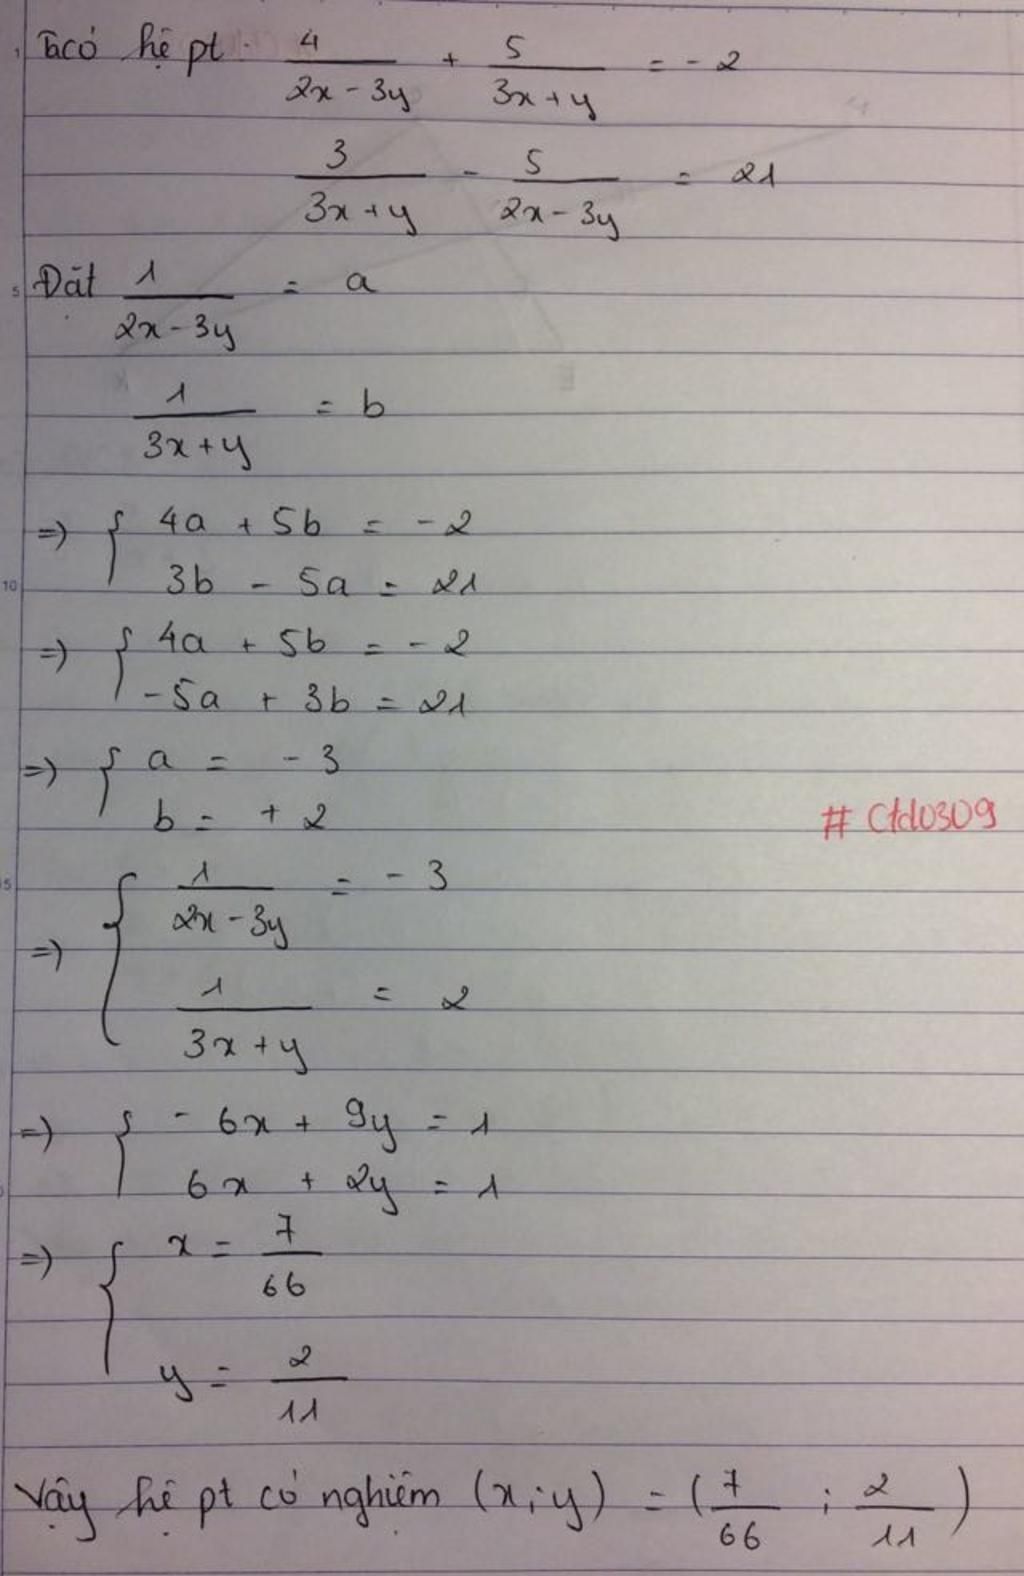 Ta có hệ pt. 4/(2x - 3y) + 5/(3x + y) = - 2
3/(3x + y) - 5/(2x - 3y) = 21
Đặt 1/(2x - 3y) = a
1/(3x + y) = b
=> { 4a + 5b = - 2
3b - 5a = 21
=> { 4a + 5b = - 2
- 5a + 3b = 21
=> { a = - 3
b = + 2
# Ctd0309
=> { 1/(2x - 3y) = - 3
1/(3x + y) = 2
=> { - 6x + 9y = 1
6x + 2y = 1
=> { x = 7/66
y = 2/11
Vậy hệ pt có nghiệm (x; y) = (7/66 ; 2/11)